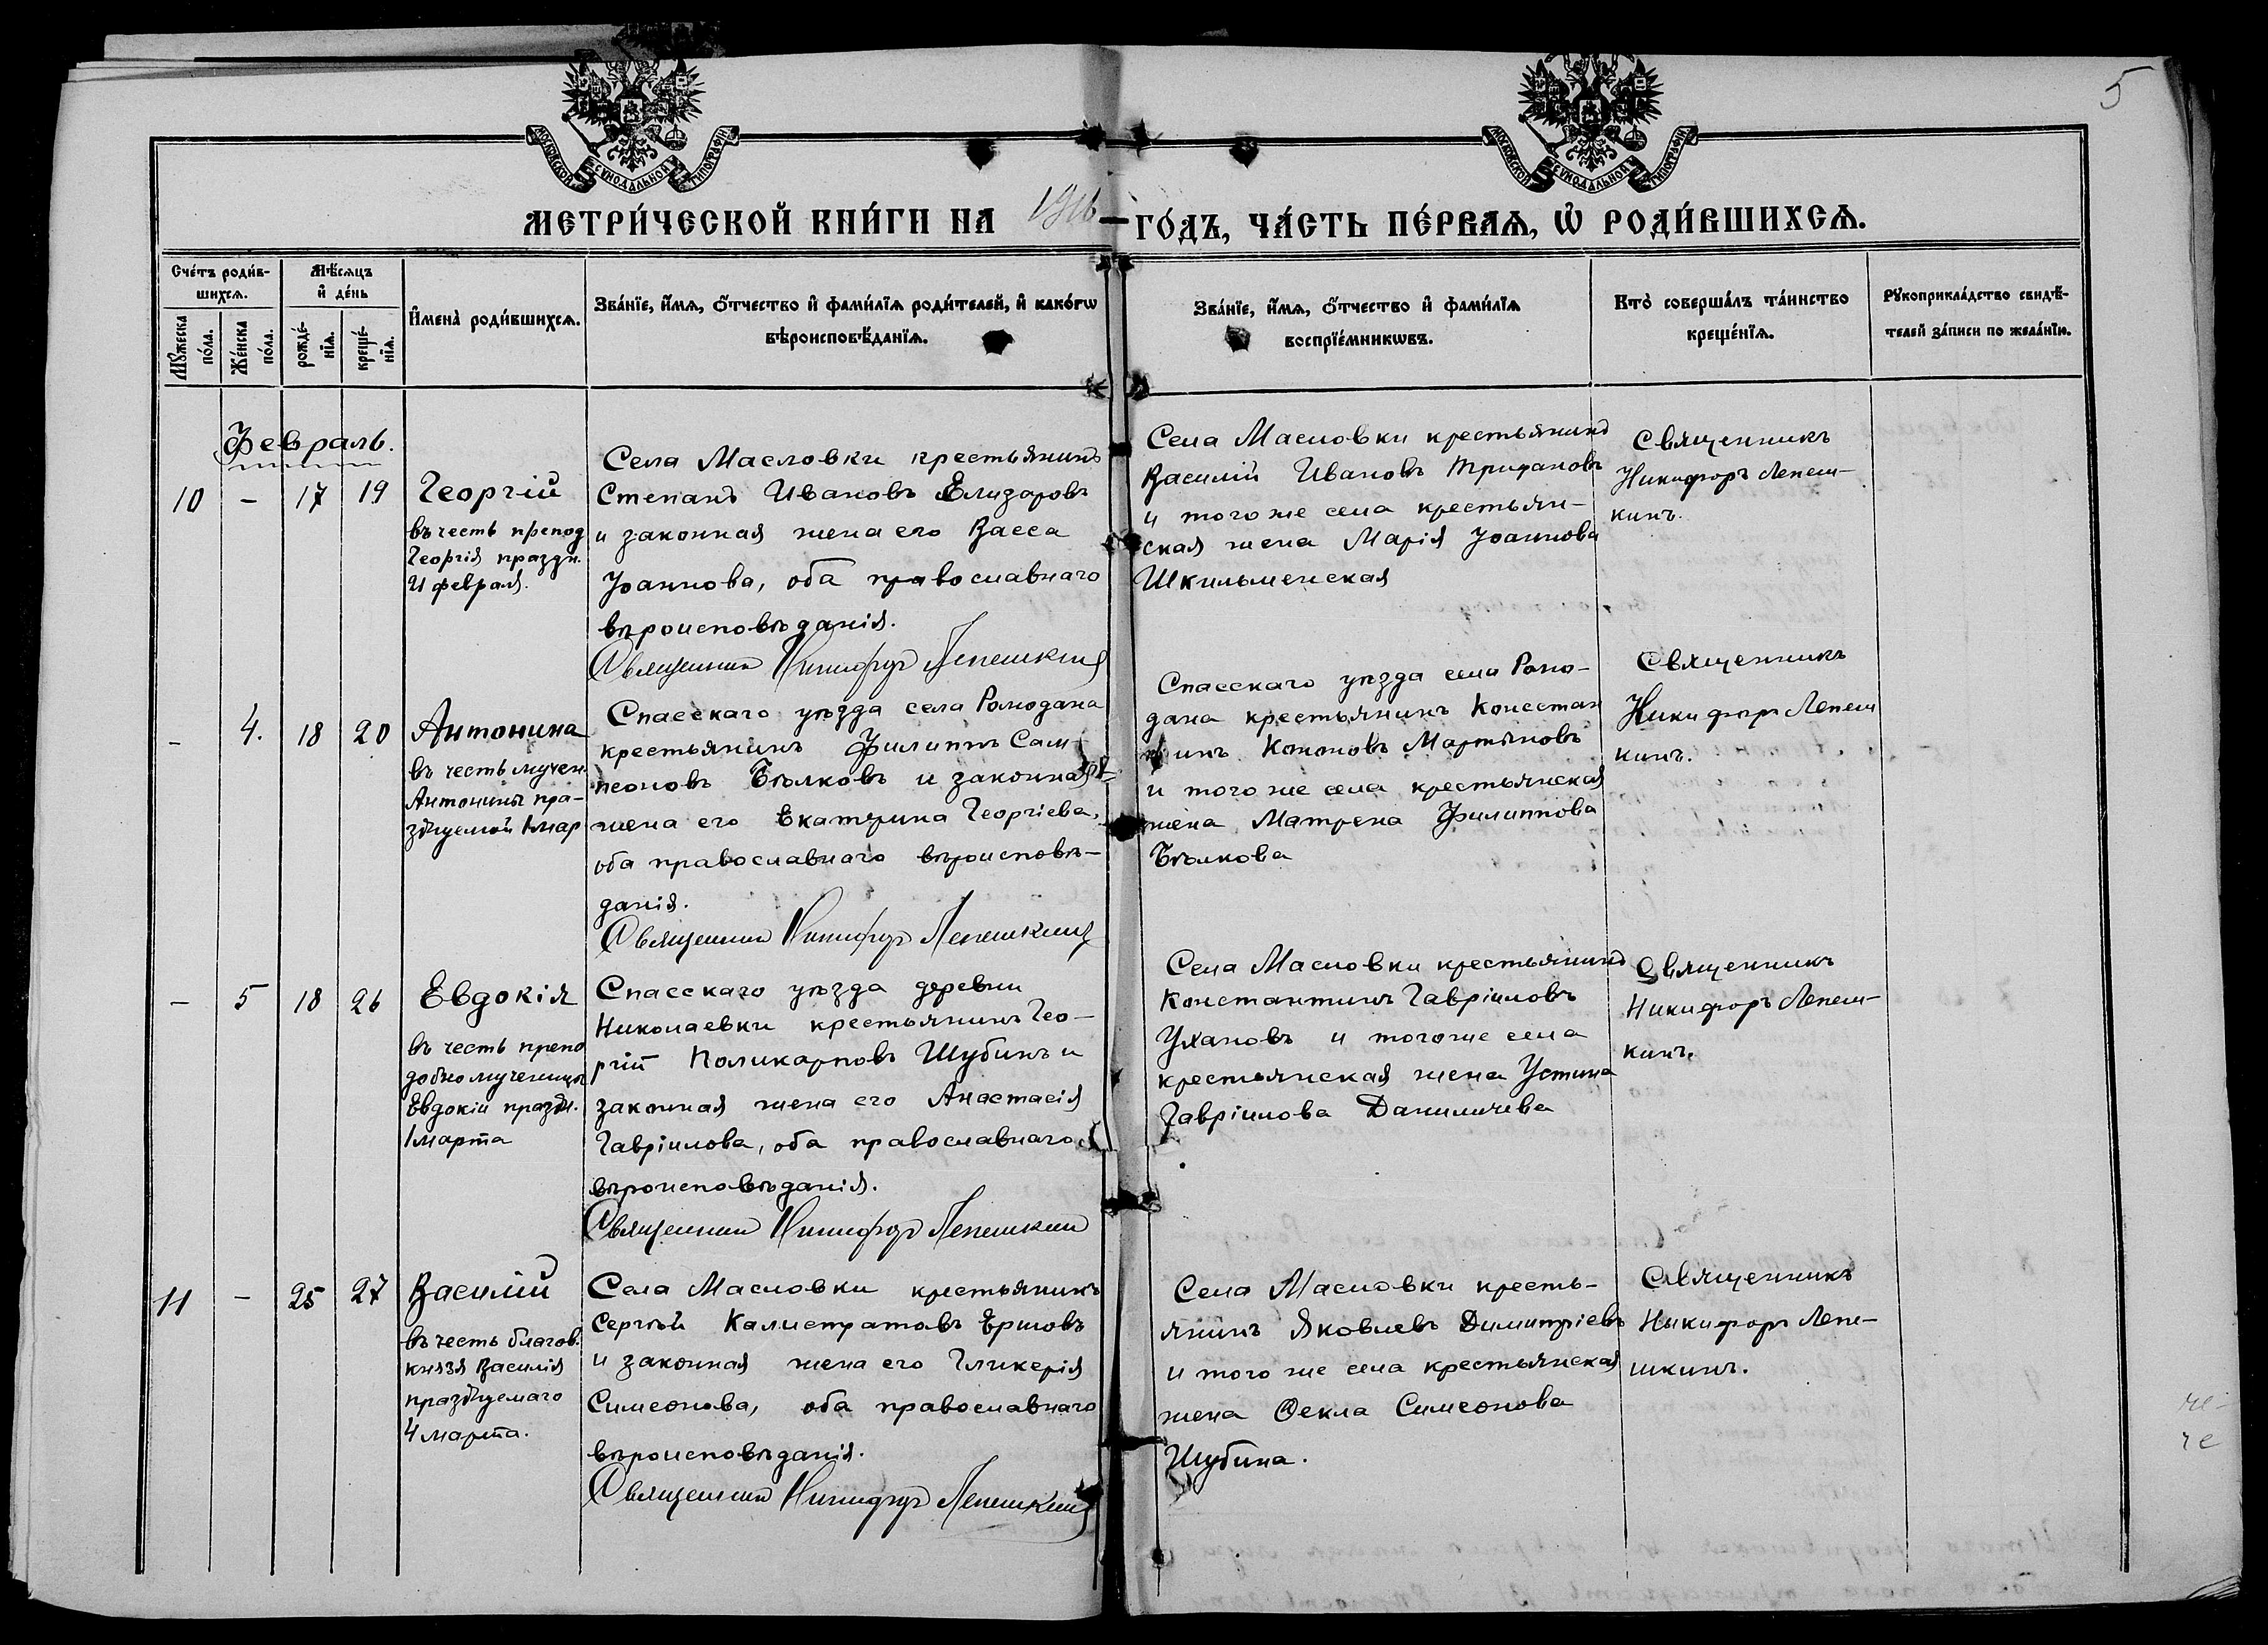 5
МОСКОВСКОЙ СѴНОДАЛЬНОЙ ТИПОГРАФІИ
МОСКОВСКОЙ СѴНОДАЛЬНОЙ ТИПОГРАФІИ
МЕТРИ́ЧЕСКОЙ КНИ́ГИ НА 1916 ГО́ДЪ, ЧА́СТЬ ПЕ́РВАѦ, Ѡ҆ РОДИ́ВШИХСѦ.
Сче́тъ роди́в-
шихсѧ.
Мꙋ́жеска
по́ла.
Же́нска
по́ла.
Мѣ́сѧцъ
и҆ де́нь
рожде́-
нїѧ.
креще́-
нїѧ.
И҆мена̀ роди́вшихсѧ.
Зва́нїе, и҆́мѧ, ѻ҆́тчество и҆ фами́лїѧ роди́телей, и҆ како́гѡ
вѣроисповѣ́данїѧ.
Зва́нїе, и҆́мѧ, ѻ҆́тчество и҆ фами́лїѧ
воспрїе́мникѡвъ.
Кто̀ соверша́лъ та́инство
креще́нїѧ.
Рꙋкоприкла́дство свидѣ́-
телей за́писи по жела́нїи.
Февраль.
10 - 17 19
Георгій
въ честь препод
Георгія праздн.
21 февраля.
Села Масловки крестьянинъ
Степанъ Ивановъ Елизаровъ
и законная жена его Васса
Іоаннова, оба православнаго
вѣроисповѣданія.
Священникъ Никифоръ Лепешкинъ
Села Масловки крестьянинъ
Василій Ивановъ Трифановъ
и того же села крестьян-
ская жена Марія Іоаннова
Шкильменская
Священникъ
Никифоръ Лепеш-
кинъ.
- 4. 18 20
Антонина
въ честь мучен.
Антонины пра-
зднуемой 1 мар
Спасскаго уѣзда села Ромодана
крестьянинъ Филиппъ Сам-
псоновъ Бѣлковъ и законная
жена его Екатерина Георгіева,
оба православнаго вѣроисповѣ-
данія.
Священникъ Никифоръ Лепешкинъ
Спасскаго уѣзда села Ромо-
дана крестьянинъ Констан
тинъ Кононовъ Мартяновъ
и того же села крестьянская
жена Матрена Филиппова
Бѣлкова
Священникъ
Никифоръ Лепеш
кинъ.
- 5 18 26
Евдокія
въ честь препо
добномученицы
Евдокіи праздн.
1 марта
Спасскаго уѣзда деревни
Николаевки крестьянинъ Гео-
ргій Поликарповъ Шубинъ и
законная жена его Анастасія
Гавріилова, оба православнаго
вѣроисповѣданія.
Священникъ Никифоръ Лепешкинъ
Села Масловки крестьянинъ
Константинъ Гавріиловъ
Ухановъ и того же села
крестьянская жена Устина
Гавріилова Даниличева
Священникъ
Никифоръ Лепеш-
кинъ.
11 - 25 27
Василій
въ честь благов.
князя Василія
празднуемаго
4 марта.
Села Масловки крестьянинъ
Сергѣй Калистратовъ Ершовъ
и законная жена его Гликерія
Симеонова, оба православнаго
вѣроисповѣданія.
Священникъ Никифоръ Лепешкинъ
Села Масловки кресть-
янинъ Яковлевъ Димитріевъ
и того же села крестьянская
жена Ѳекла Симеонова
Шубина.
Священникъ
Никифоръ Лепе-
шкинъ.